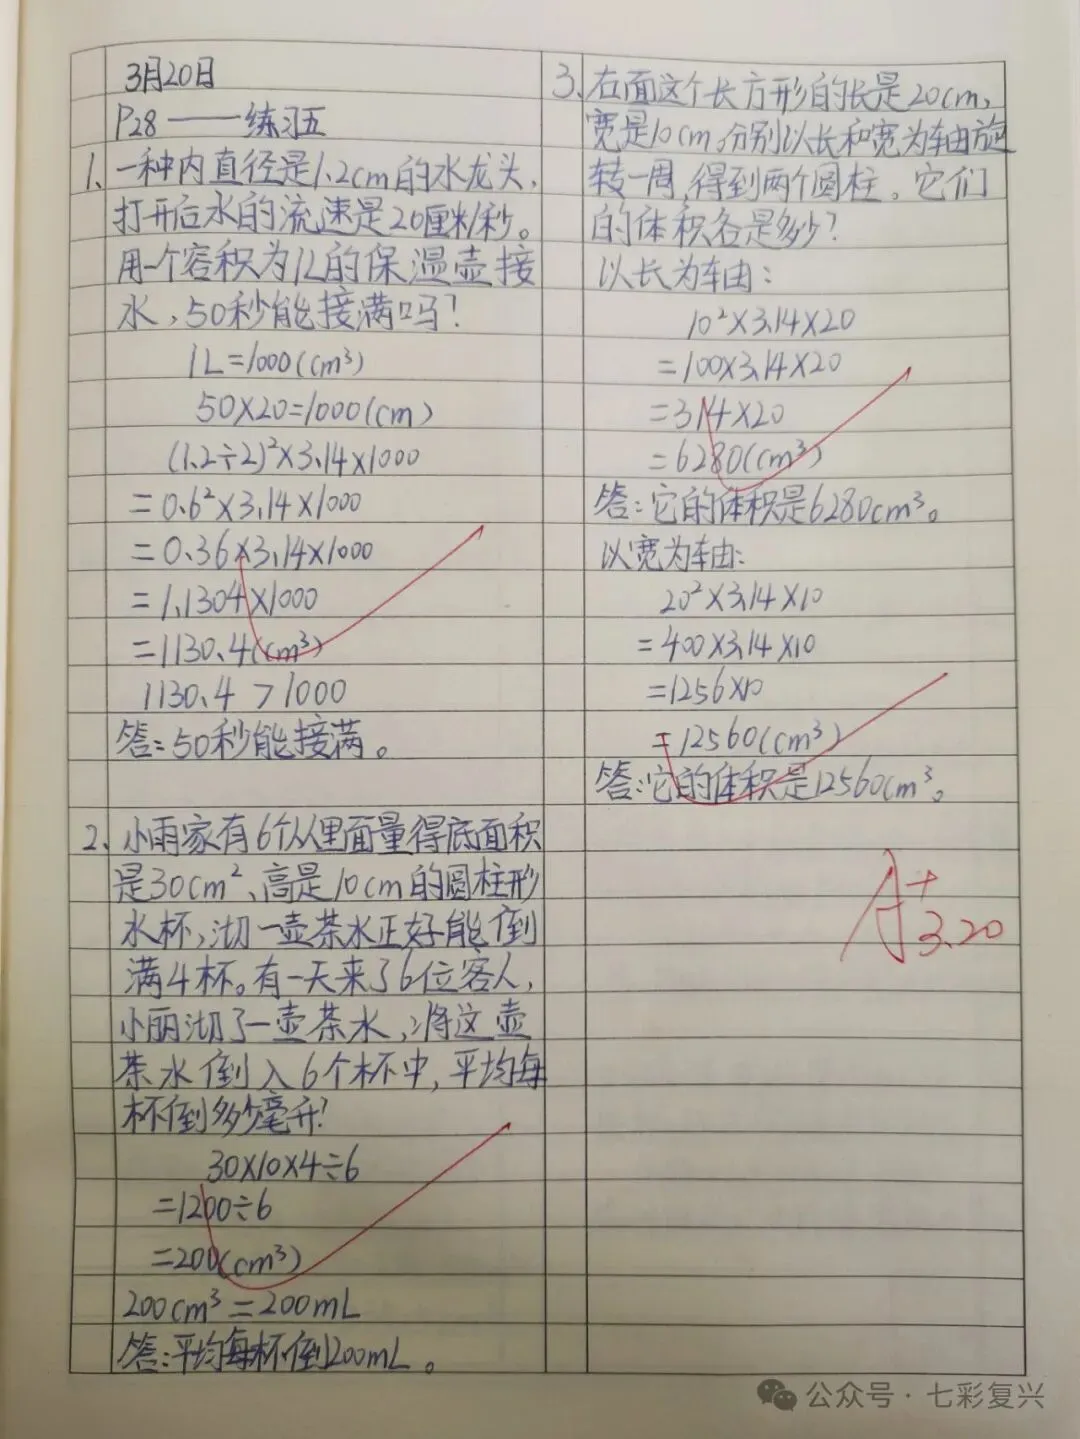 3月20日
P28——练习五
1、一种内直径是1.2cm的水龙头,
打开后水的流速是20厘米/秒。
用一个容积为1L的保温壶接
水,50秒能接满吗?
1L=1000(cm³)
50×20=1000(cm)
(1.2÷2)²×3.14×1000
=0.6²×3.14×1000
=0.36×3.14×1000
=1.1304×1000
=1130.4(cm³)
1130.4>1000
答:50秒能接满。
2、小雨家有6个从里面量得底面积
是30cm²、高是10cm的圆柱形
水杯,沏一壶茶水正好能倒
满4杯。有一天来了6位客人,
小丽沏了一壶茶水,将这壶
茶水倒入6个杯中,平均每
杯倒多少毫升?
30×10×4÷6
=1200÷6
=200(cm³)
200cm³=200mL
答:平均每杯倒200mL。
3、右面这个长方形的长是20cm,
宽是10cm。分别以长和宽为轴旋
转一周,得到两个圆柱。它们
的体积各是多少?
以长为轴:
10²×3.14×20
=100×3.14×20
=314×20
=6280(cm³)
答:它的体积是6280cm³。
以宽为轴:
20²×3.14×10
=400×3.14×10
=1256×10
=12560(cm³)
答:它的体积是12560cm³。
A+
3.20
公众号·七彩复兴